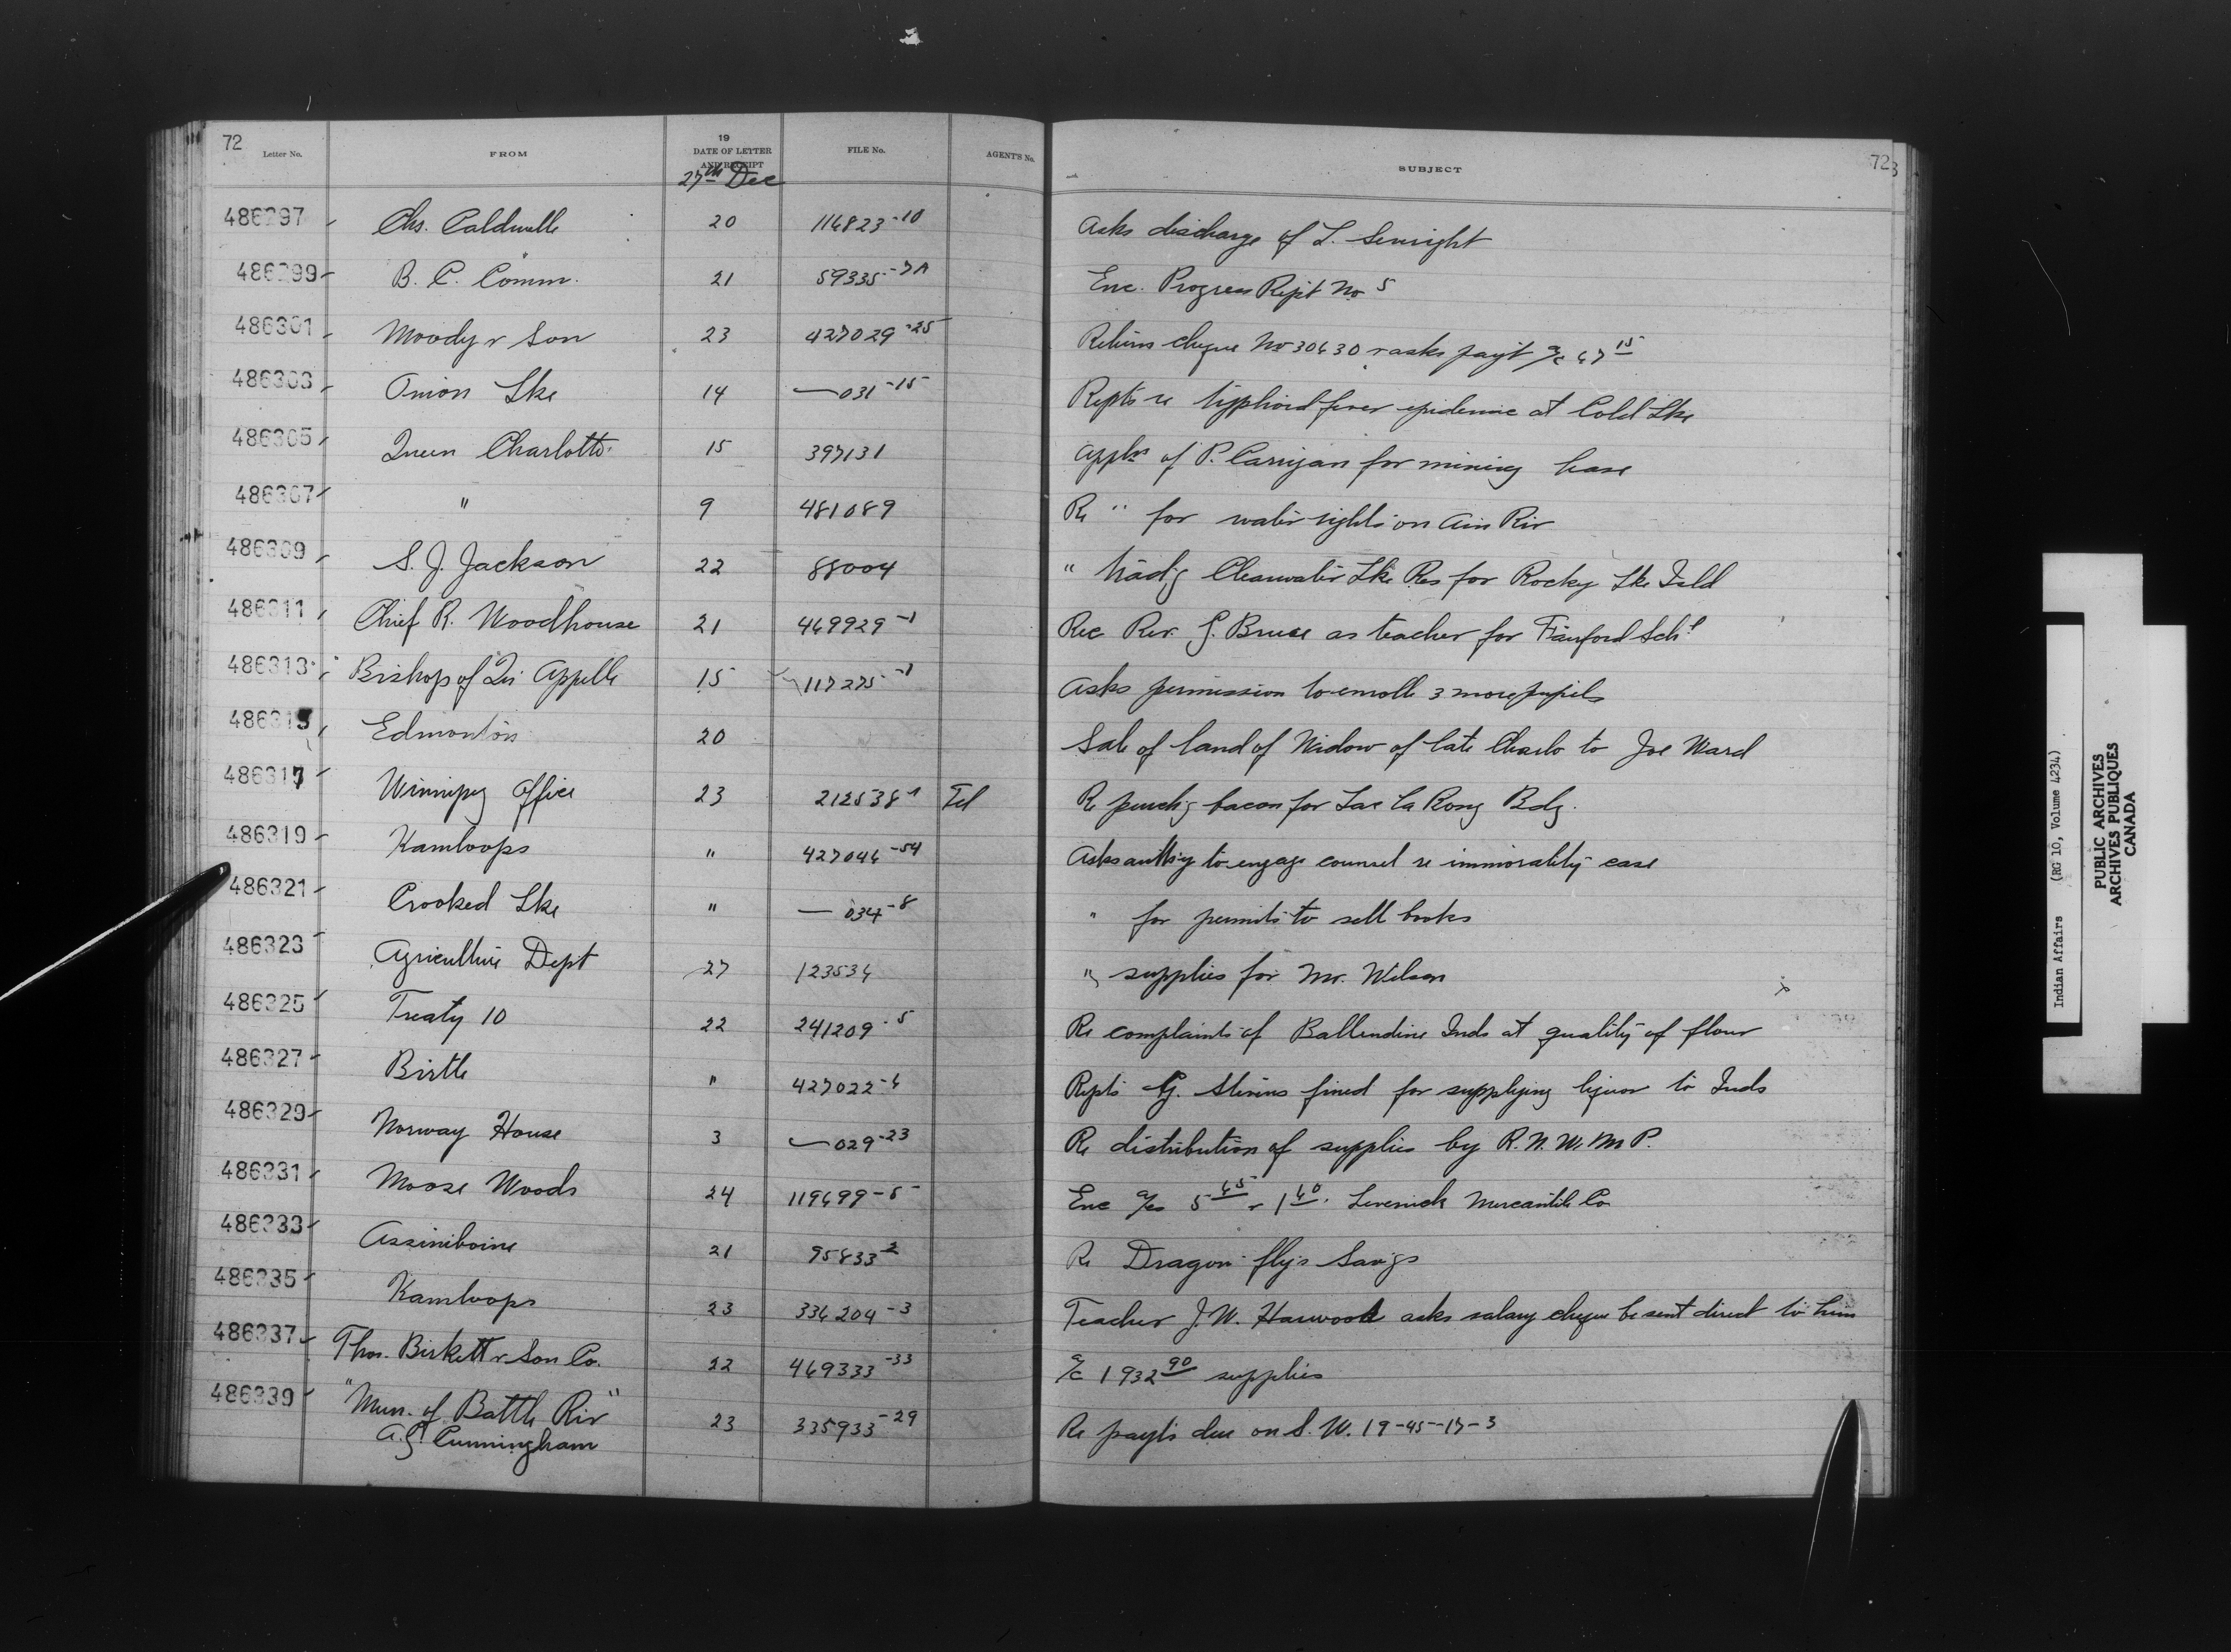 72
19
Letter No. FROM DATE OF LETTER AND RECEIPT FILE No. AGENT'S No. SUBJECT 72
27th Dec
486297 Chs. Caldwell 20 114823-10 Asks discharge of L. Senright
486299 B. C. Comm. 21 59335-7A Enc. Progress Rept No 5
486301 Moody & Son 23 427029-25 Returns cheque No 30430 & asks payt a/c 47 15
486303 Onion Lke 14 — 031-15 Repts re typhoid fever epidemic at Cold Lke
486305 Queen Charlotte 15 397131 Appln of P. Carrigan for mining lease
486307 " 9 481089 Re " for water rights on Ain Riv
486309 S. J. Jackson 22 88004 " trad'g Clearwater Lke Res for Rocky Lke Isld
486311 Chief R. Woodhouse 21 469929-1 Rec Rev. G. Bruce as teacher for Fairford Schl
486313 Bishop of Qu'Appelle 15 117275-1 Asks permission to enroll 3 more pupils
486315 Edmonton 20 Sale of land of Widow of late Charlo to Joe Ward
486317 Winnipeg Office 23 212538-1 Tel Re purch'g bacon for Lac la Rong Bdg.
486319 Kamloops " 427044-54 Asks auth'y to engage counsel re immorality case
486321 Crooked Lke " — 034-8 " for permits to sell books
486323 Agriculture Dept 27 123534 " supplies for Mr. Wilson
486325 Treaty 10 22 241209-5 Re complaints of Ballendine Inds at quality of flour
486327 Birtle " 427022-4 Repts G. Stevens fined for supplying liquor to Inds
486329 Norway House 3 — 029-23 Re distribution of supplies by R. N. W. M P.
486331 Moose Woods 24 119499-5 Enc a/cs 5 45 & 1 40. Mercantile Co
486333 Assiniboine 21 95833-2 Re Dragon-fly's Sav'gs
486335 Kamloops 23 334204-3 Teacher J. W. Harwood asks salary cheque be sent direct to him
486337 Thos. Birkett & Son Co. 22 469333-33 a/c 1932 90 supplies
486339 "Mun. of Battle Riv" 23 335933-29 Re payts due on S. W. 19-45-17-3
A. G. Cunningham
Indian Affairs (RG 10, Volume 4234)
PUBLIC ARCHIVES
ARCHIVES PUBLIQUES
CANADA